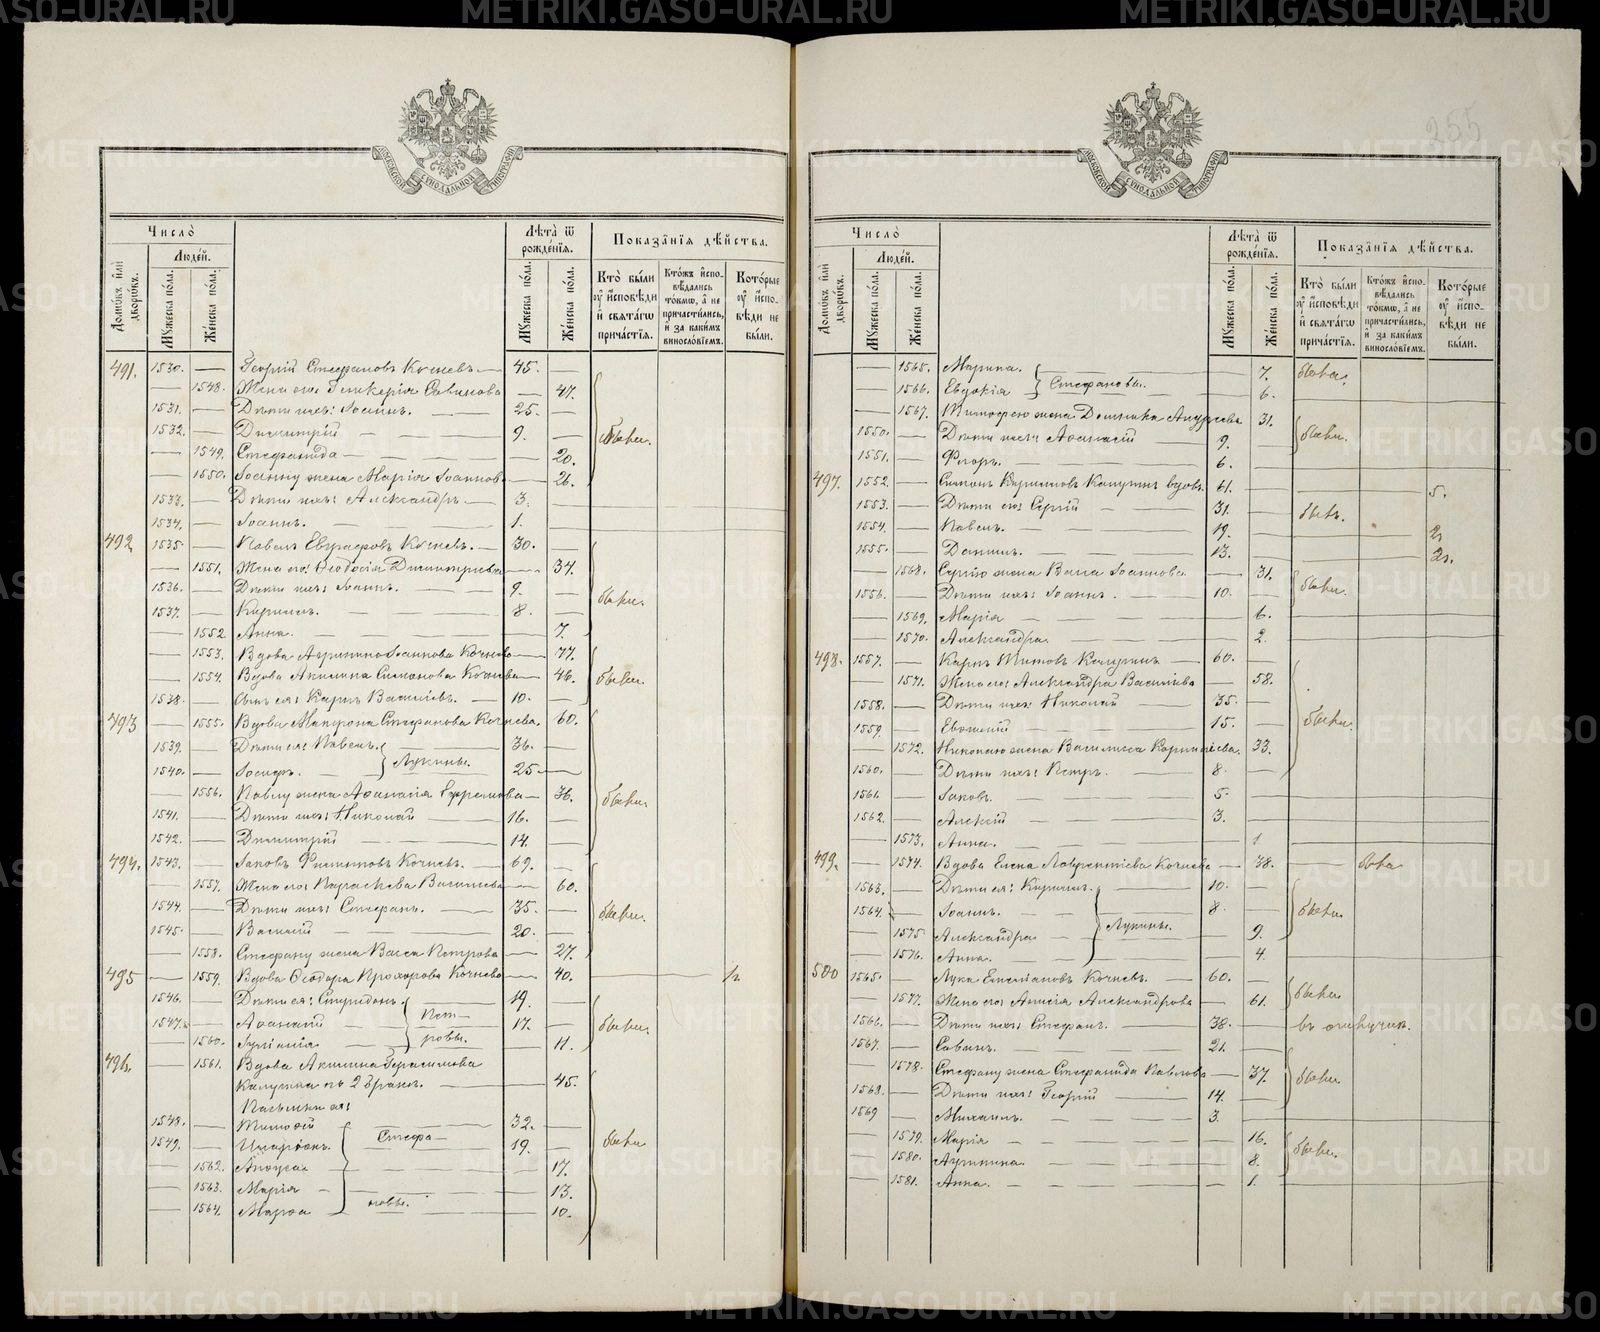 255
МОСКОВСКОЙ СУНОДАЛЬНОЙ ТИПОГРАФИИ
Число̀
Людей.
Домѡвъ или дворѡвъ.
Мꙋжеска пола.
Женска пола.
Лѣта ѿ рожденїѧ.
Мꙋжеска пола.
Женска пола.
Показанїѧ дѣйства.
Кто были ᲂу҆ исповѣди и свѧтагѡ причастїѧ.
Ктожъ исповѣдались токмѡ, а не причастились, и за какимъ винословїемъ.
Которые ᲂу҆ исповѣди не были.
491. 1530. — Георгій Стефановъ Кочневъ — 45. —
— 1548. Жена его: Гликерія Савинова — 47.
1531. — Дѣти ихъ: Іоаннъ. — 25. —
1532. — Димитрій — 9. — были.
— 1549. Стефанида — 20.
— 1550. Іоанну жена Марія Іоаннова — 26.
1533. — Дѣти ихъ: Александръ — 3.
1534. — Іоаннъ. — 1.
492 1535 — Павелъ Евграфовъ Кочневъ. — 30. —
— 1551. Жена его: Ѳеодосія Димитріева — 34.
1536. — Дѣти ихъ: Іоаннъ. — 9. —
1537. — Кириллъ. — 8. — были.
— 1552 Анна. — 7.
— 1553. Вдова Агрипина Іоаннова Кочнева — 77.
— 1554. Вдова Акилина Симонова Кочнева — 46. были.
1538. — Сынъ ея: Карпъ Василіевъ. — 10. —
493 — 1555. Вдова Матрона Стефанова Кочнева. 60.
1539. — Дѣти ея: Павелъ. — 36. —
1540. — Іосифъ. — Лукины. 25. —
— 1556. Павлу жена Аѳанасія Ефремова — 36. были.
1541. — Дѣти ихъ: Николай — 16. —
1542. — Димитрій — 14. —
494. 1543. — Іаковъ Филиповъ Кочневъ. — 69. —
— 1557. Жена его: Параскева Василіева — 60.
1544. — Дѣти ихъ: Стефанъ. — 35. — были.
1545. — Василій — 20. —
— 1558. Стефану жена Васса Петрова — 27.
495 — 1559. Вдова Ѳеодора Прохорова Кочнева — 40.
1546. — Дѣти ея: Спиридонъ. — 19. —
1547. — Аѳанасій — Пет- 17. — были.
— 1560. — ровы. — 11.
496. — 1561. Вдова Акилина Герасимова
Капугина во 2 бракѣ. — 45.
Пасынки ея:
1548. — Тимоѳей — 32. —
1549. — Иларіонъ. Стефа- 19. — были
— 1562. — 17.
— 1563. Марія — 13.
— 1564. Марѳа — новы. — 10.
Число̀
Людей.
Домѡвъ или дворѡвъ.
Мꙋжеска пола.
Женска пола.
Лѣта ѿ рожденїѧ.
Мꙋжеска пола.
Женска пола.
Показанїѧ дѣйства.
Кто были ᲂу҆ исповѣди и свѧтагѡ причастїѧ.
Ктожъ исповѣдались токмѡ, а не причастились, и за какимъ винословїемъ.
Которые ᲂу҆ исповѣди не были.
— 1565. Марина. — 7. были.
— 1566. Евдокія Стефановы. — 6.
— 1567. Тимоѳею жена Домника Андреева 31.
1550. — Дѣти ихъ: Аѳанасій — 9. — были.
1551. — Флоръ. — 6. —
497. 1552. — Симонъ Капугинъ вдовъ. 61. — 5.
1553. — Дѣти его: Сергій — 31. — бывъ.
1554. — Павелъ. — 19. — 2.
1555. — Даніилъ. — 13. — 2.
— 1568. Сергію жена Васса Іоаннова. — 31.
1556. — Дѣти ихъ: Іоаннъ. — 10. — были.
— 1569. Марія — 6.
— 1570. Александра — 2.
498. 1557. — Карпъ Титовъ Капугинъ — 60. —
— 1571. Жена его: Александра Василіева — 58.
1558. — Дѣти ихъ: Николай — 35. —
1559. — Евѳимій — 15. — были.
— 1572. Николаю жена Василисса Корниліева. 33.
1560. — Дѣти ихъ: Петръ. — 8. —
1561. — Іаковъ. — 5. —
1562. — Алексій — 3. —
— 1573. Анна. — 1
499. — 1574. Вдова Елена Лаврентіева Кочнева — 38. —
1563. — Дѣти ея: Кириллъ. — 10. —
1564. — Іоаннъ. — 8. — были.
— 1575 Александра — Лукины. — 9.
— 1576. Анна. — 4.
500 1565. — Лука Емеліановъ Кочневъ. — 60. —
— 1577. Жена его: Анисія Александрова — 61. были.
1566. — Дѣти ихъ: Стефанъ. — 38. — въ отлучкѣ.
1567. — Савинъ. — 21. —
— 1578. Стефану жена Стефанида Павлова — 37. были.
1568. — Дѣти ихъ: Георгій — 14. —
1569 — Михаилъ. — 3. —
— 1579. Марія — 16.
— 1580. Агрипина. — 8. были.
— 1581. Анна. — 1.
METRIKI.GASO-URAL.RU